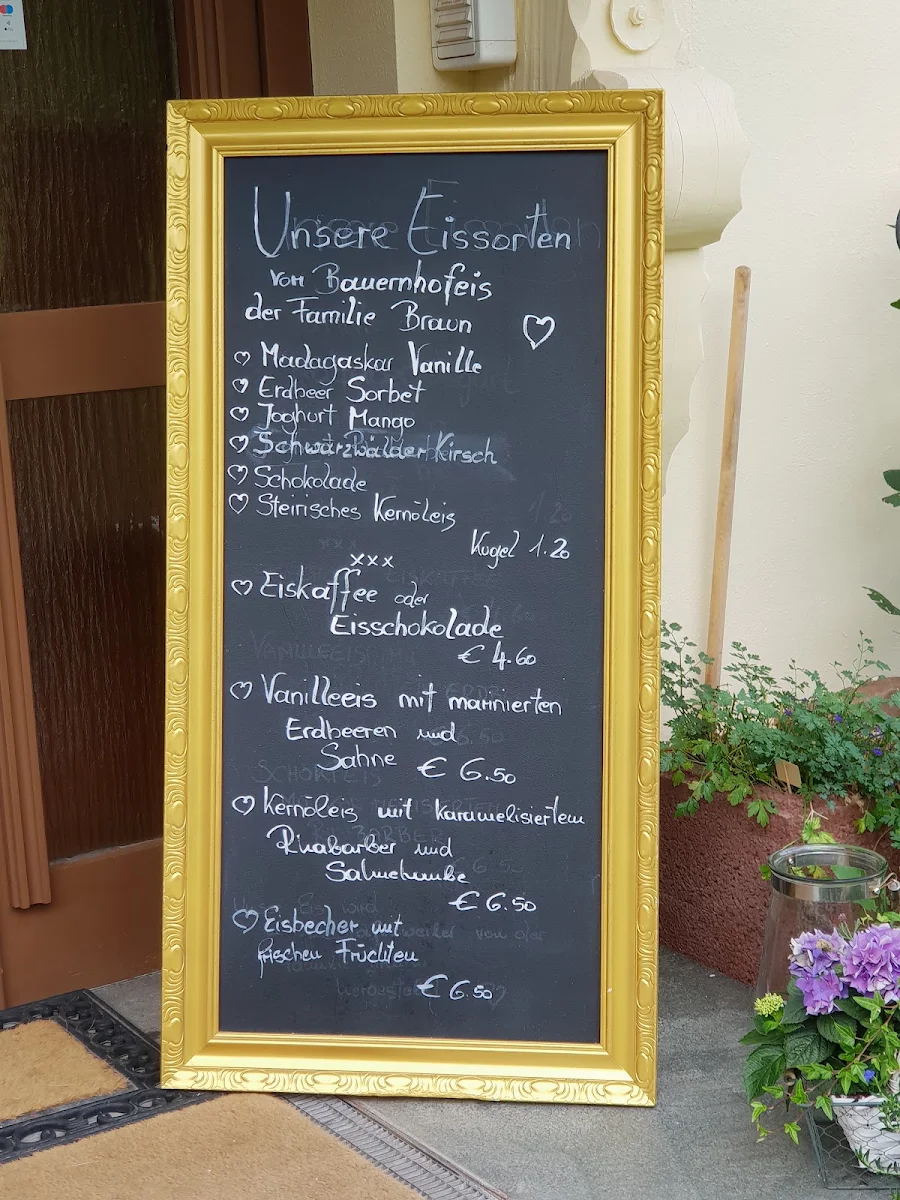 Unsere Eissorten
vom Bauernhofeis
der Familie Braun
Madagaskar Vanille
Erdbeer Sorbet
Joghurt Mango
Schwarzwälder Kirsch
Schokolade
Steirisches Kernöleis
Kugel 1.20
xxx
Eiskaffee oder
Eisschokolade
€ 4.60
Vanilleeis mit marinierten
Erdbeeren und
Sahne € 6.50
Kernöleis mit karamelisiertem
Rhabarber und
Sahnehaube
€ 6.50
Eisbecher mit
frischen Früchten
€ 6.50